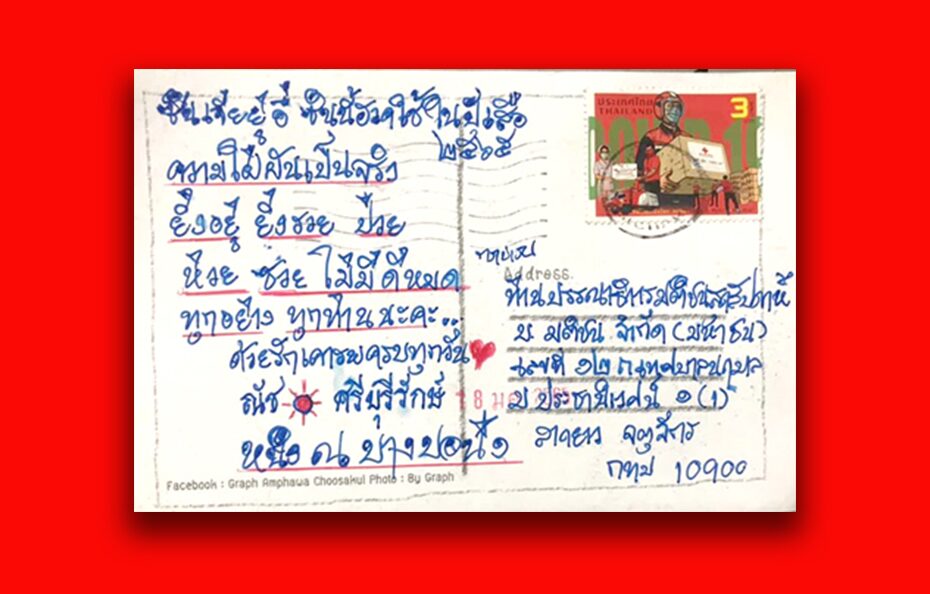 ซินเจียยู่อี่ ซินนี้ฮวดใช้ ในปีเสือ
๒๕๖๕
ความใฝ่ฝันเป็นจริง
ยิ่งอยู่ ยิ่งรวย ป่วย
ห่วย ซวย ไม่มี ดีหมด
ทุกอย่าง ทุกท่านนะคะ..
ด้วยรักเคารพครบทุกวัน
ณัช ศรีบุรีรักษ์
หนึ่ง ณ บางปอนึ่ง
Facebook : Graph Amphawa Choosakul Photo : By Graph
ประเทศไทย
THAILAND
3
Address.
ท่านบรรณาธิการมติชนสุดสัปดาห์
บ. มติชน จำกัด (มหาชน)
เลขที่ ๑๒ ถ.เทศบาลนฤมาล
ป ประชานิเวศน์ ๑ (1)
ลาดยาว จตุจักร
กทม 10900